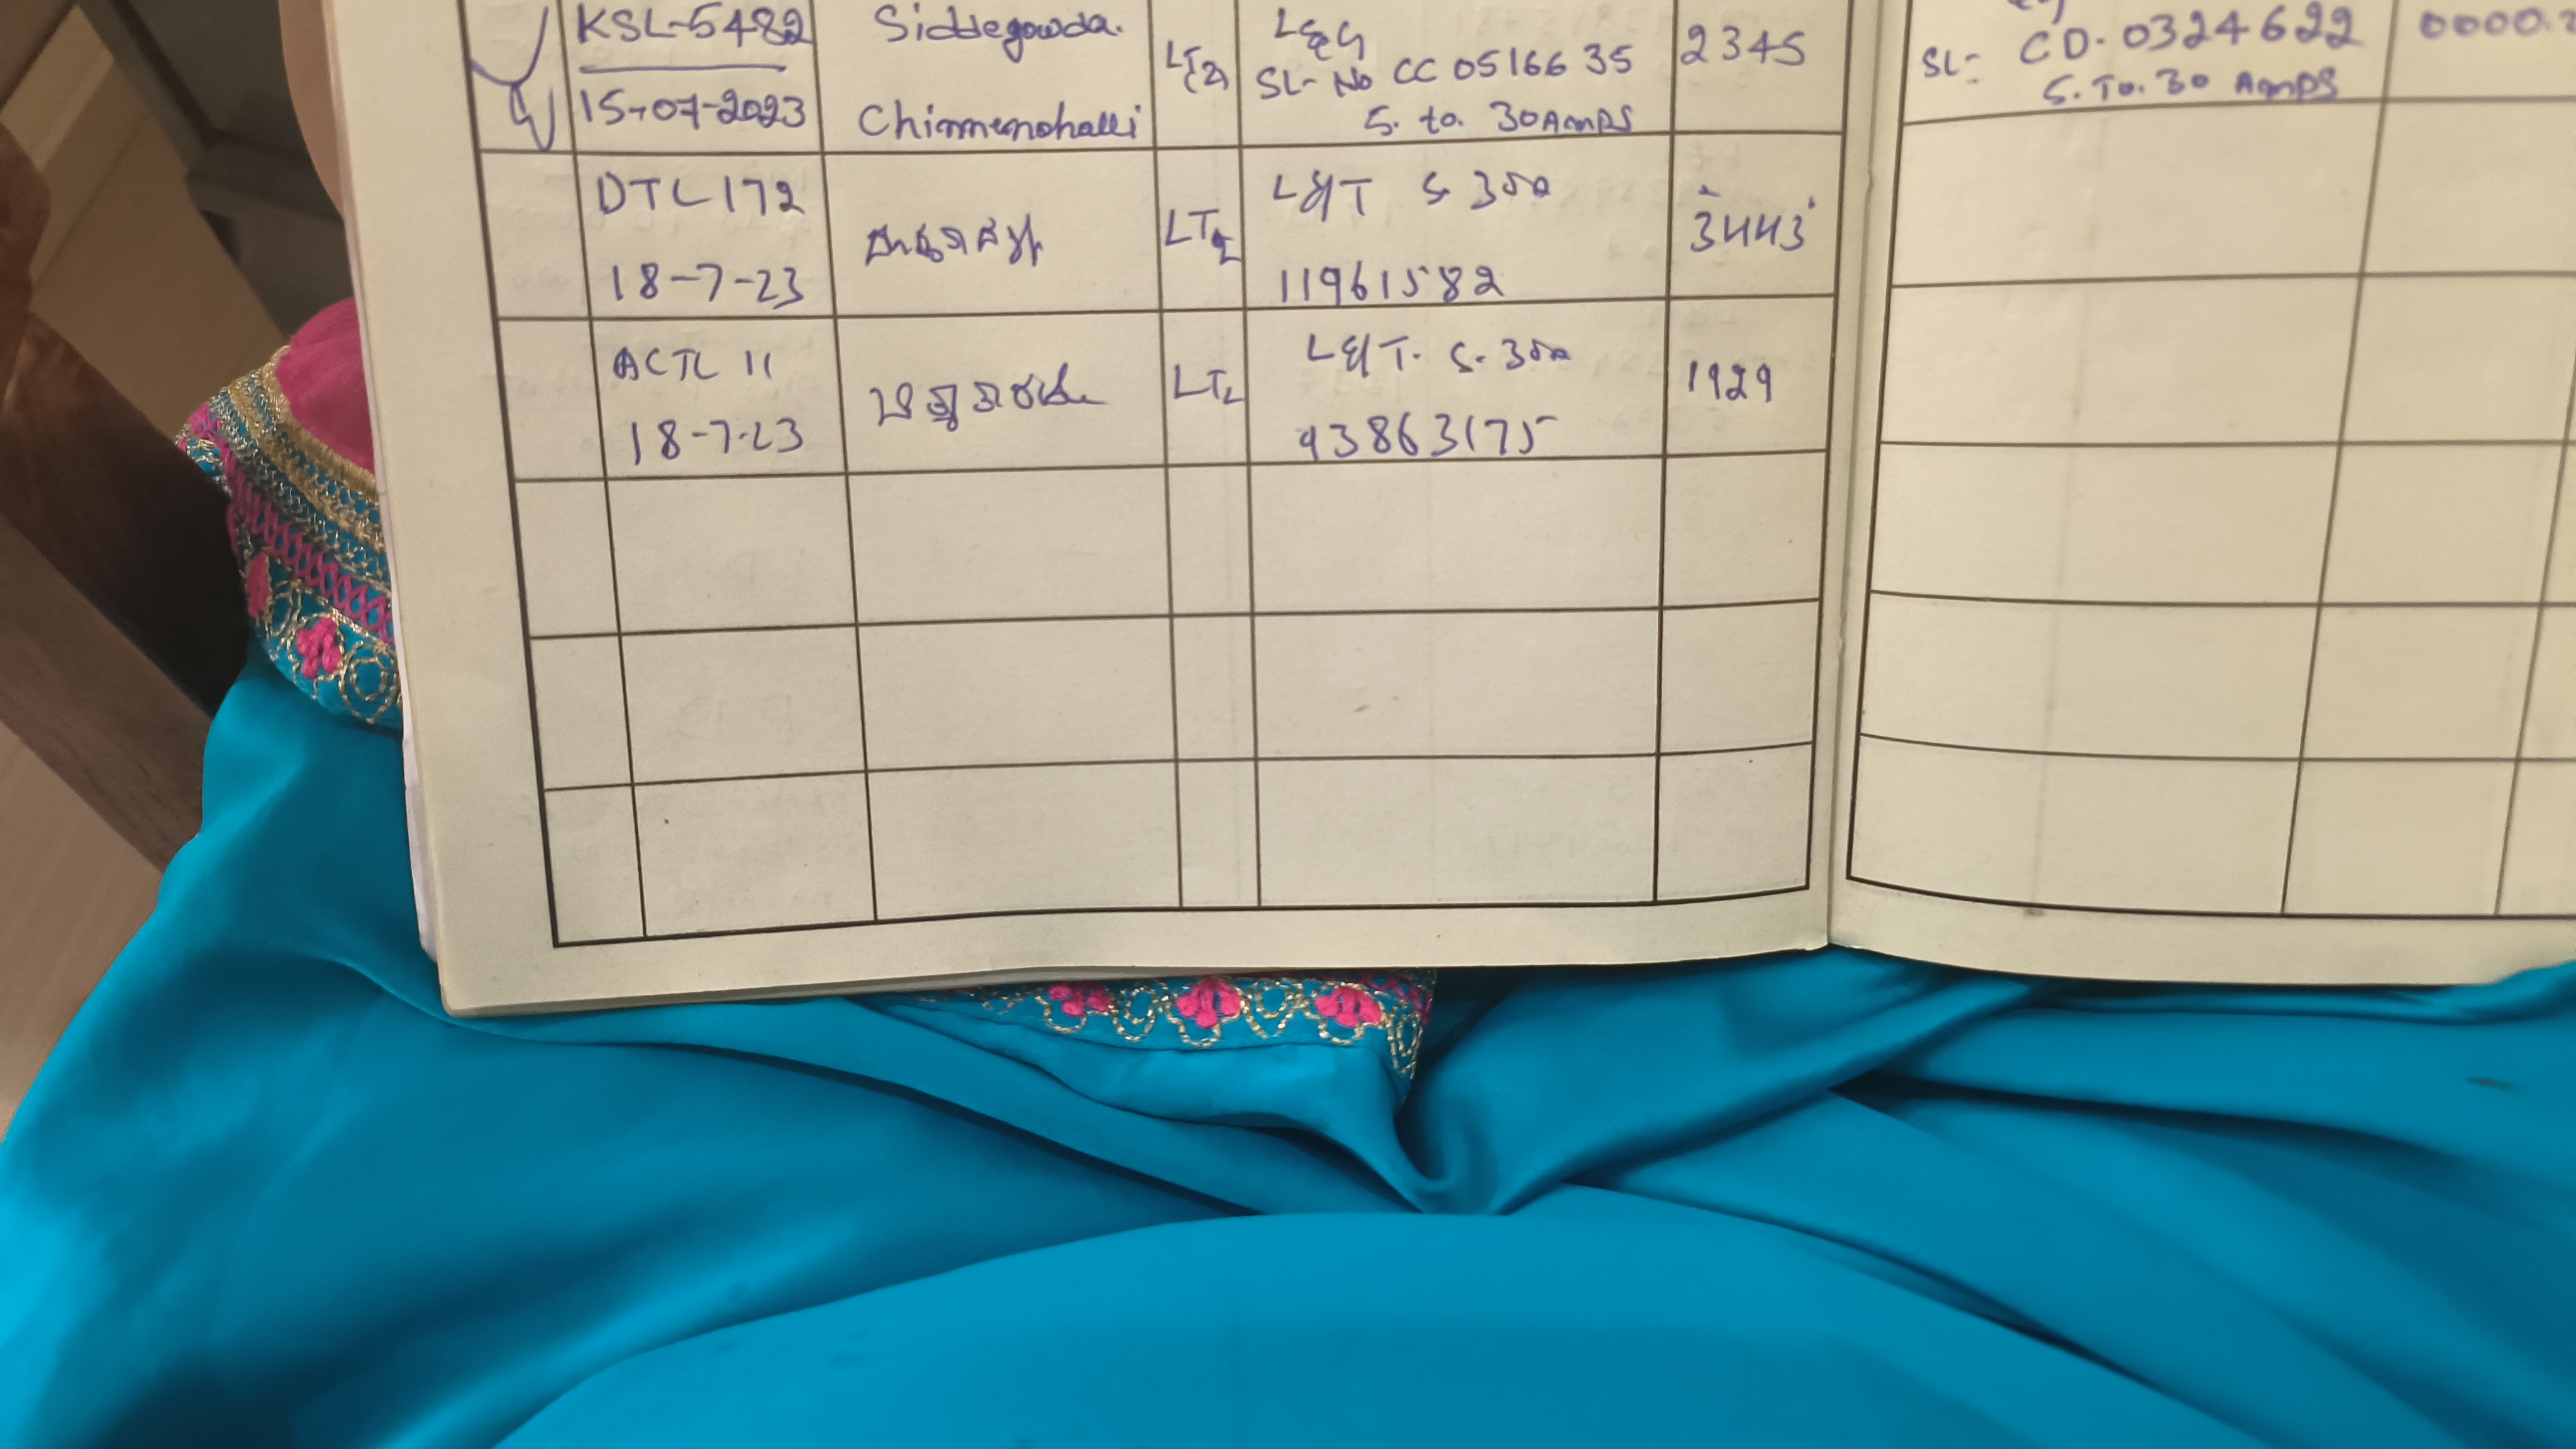 KSL-5482 Siddegowda. L&G 2345
LT(2) SL- No CC 0516635
15-07-2023 Chinnenahalli 5. to. 30 Amps
SL:- CD. 0324622 0000.
5. To. 30 Amps
DTL 172 L&T 5-30A
LT2 3443
18-7-23 11961582
ACTL 11 L&T. 5-30A
LT2 1929
18-7-23 93863175